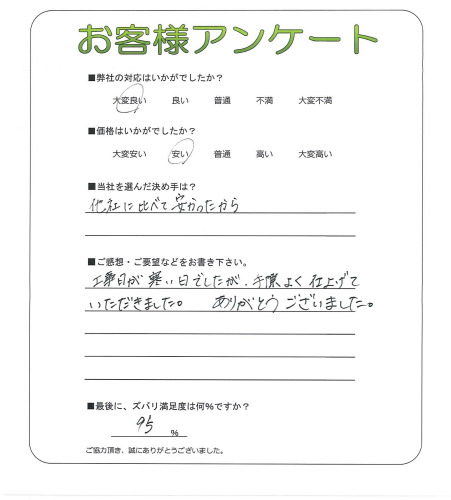 お客様アンケート
■弊社の対応はいかがでしたか？
大変良い 良い 普通 不満 大変不満
■価格はいかがでしたか？
大変安い 安い 普通 高い 大変高い
■当社を選んだ決め手は？
他社に比べて安かったから
■ご感想・ご要望などをお書き下さい。
工事日が寒い日でしたが、手際よく仕上げて
いただきました。 ありがとうございました。
■最後に、ズバリ満足度は何％ですか？
95 ％
ご協力頂き、誠にありがとうございました。